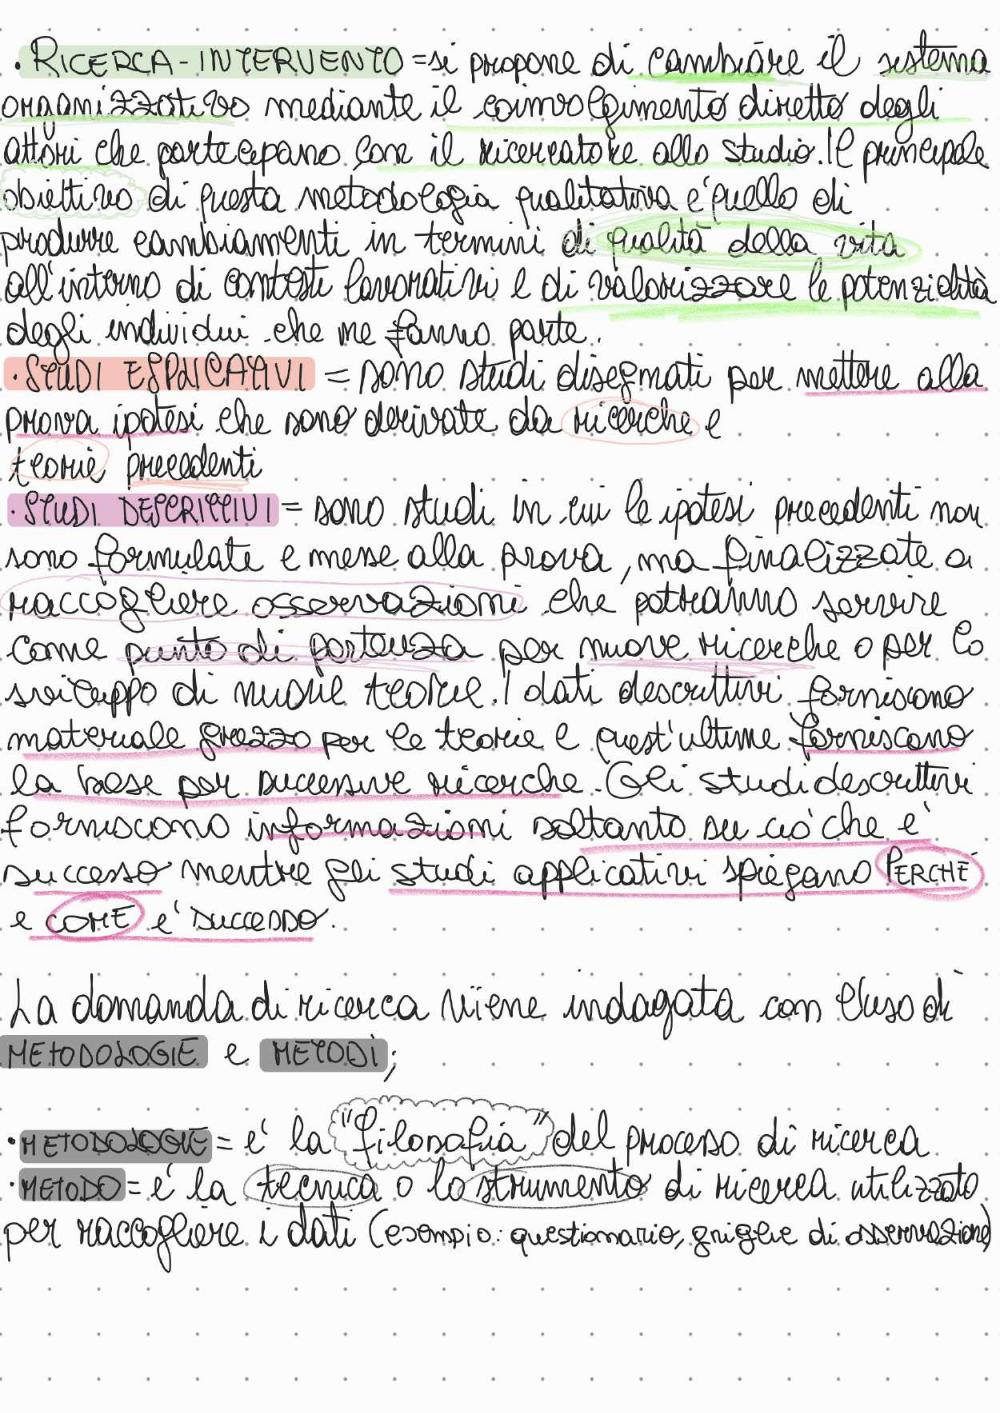 · RICERCA-INTERVENTO = si propone di cambiare il sistema
organizzativo mediante il coinvolgimento diretto degli
attori che partecipano con il ricercatore allo studio. Il principale
obiettivo di questa metodologia qualitativa e' quello di
produrre cambiamenti in termini di qualità della vita
all'interno di contesti lavorativi e di valorizzare le potenzialità
degli individui che ne fanno parte.
· STUDI ESPLICATIVI = sono studi disegnati per mettere alla
prova ipotesi che sono derivate da ricerche e
teorie precedenti
· STUDI DESCRITTIVI = sono studi in cui le ipotesi precedenti non
sono formulate e messe alla prova, ma finalizzate a
raccogliere osservazioni che potranno servire
come punto di partenza per nuove ricerche o per lo
sviluppo di nuove teorie. I dati descrittivi forniscono
materiale grezzo per le teorie e quest'ultime forniscono
la base per successive ricerche. Gli studi descrittivi
forniscono informazioni soltanto su ciò che e'
successo mentre gli studi applicativi spiegano PERCHÉ
e COME e' successo.
La domanda di ricerca viene indagata con l'uso di
METODOLOGIE e METODI;
· METODOLOGIE = e' la "filosofia" del processo di ricerca
· METODO = e' la tecnica o lo strumento di ricerca utilizzato
per raccogliere i dati (esempio: questionario, griglie di osservazione)